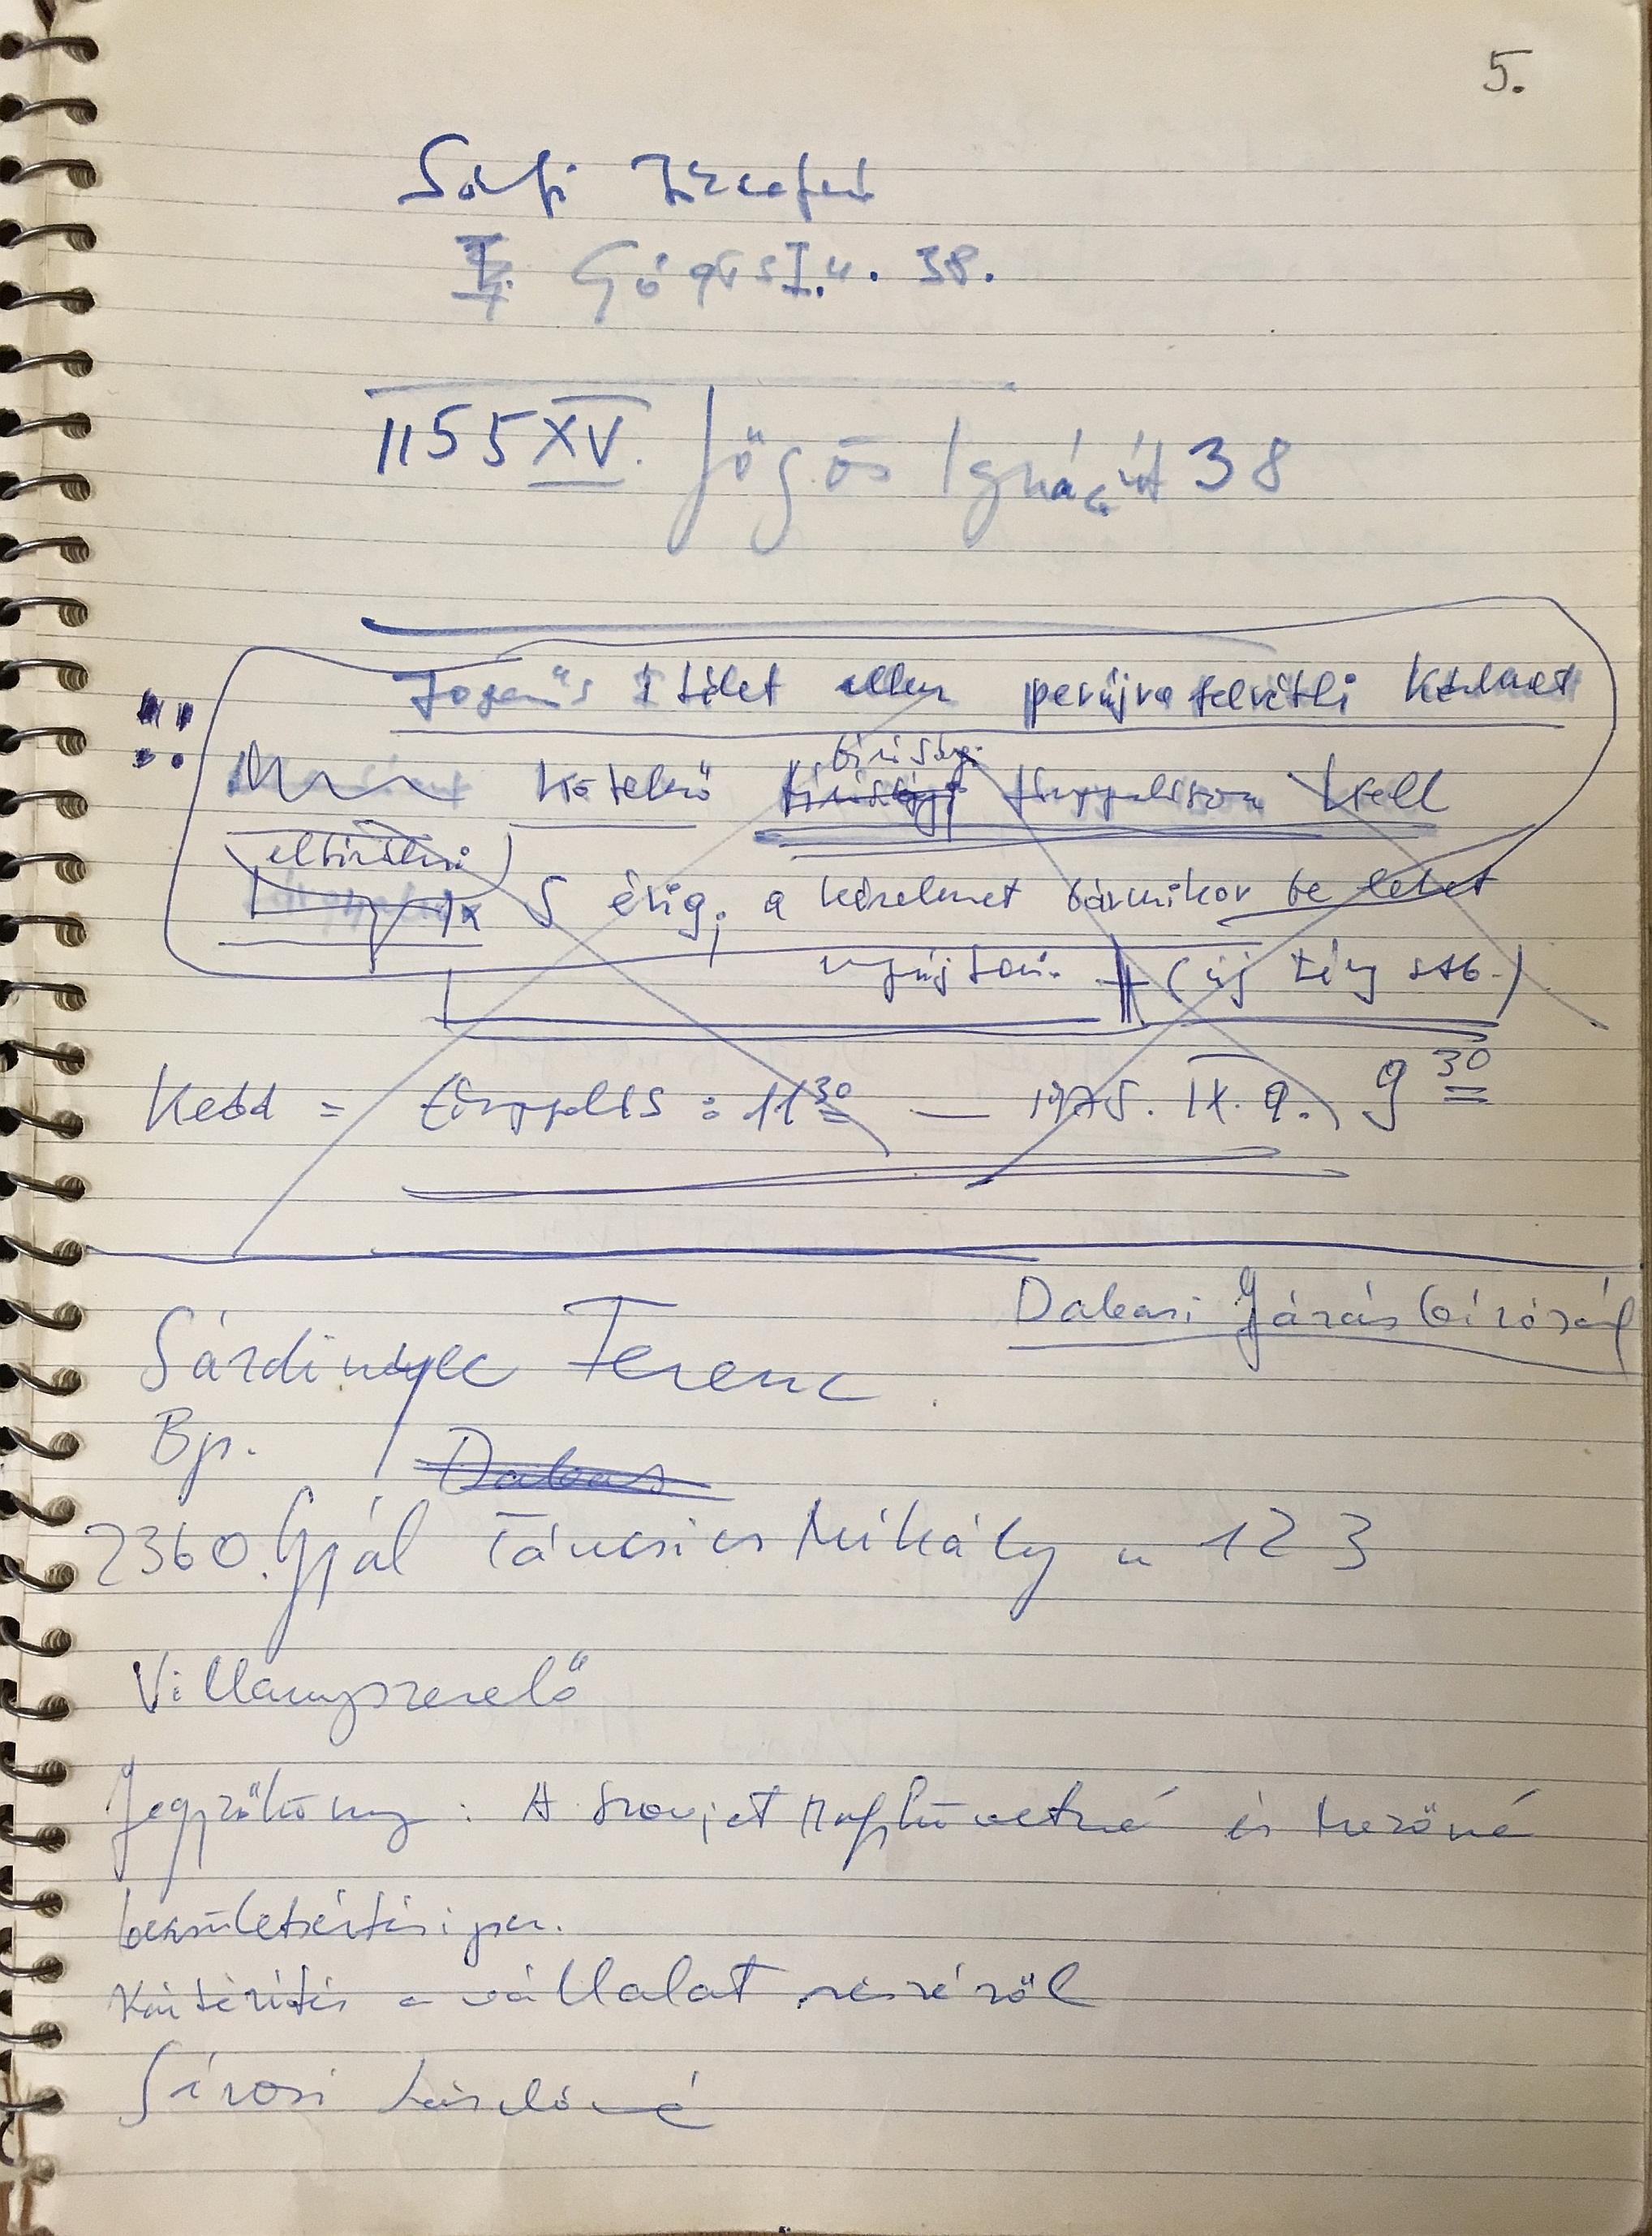 5.
38.
1155 XV. Gögös Ignác út 38
Jogerős ítélet ellen perújrafelvételi kérelmet
bírósági
kötelező tárgyaláson kell
elbírálni
5 évig; a kérelmet bármikor be lehet
nyújtani. (új tény stb.)
Kedd = tárgyalás : 11 30 — 1975. IX. 9. 9 30
Dabasi Járásbíróság
Ferenc
Bp.
Dabas
2360. Gyál Táncsics Mihály u 123
Villanyszerelő
Jegyzőköny : A és
becsületsértési per.
Kártérítés a vállalat részéről
Lászlóné